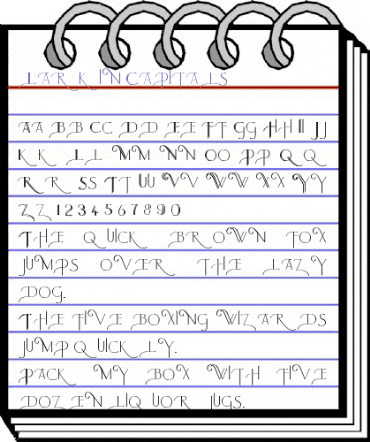 LARKIN CAPITALS
AA BB CC DD EE FF GG HH II JJ
KK LL MM NN OO PP QQ
RR SS TT UU VV WW XX YY
ZZ 1234567890
THE QUICK BROWN FOX
JUMPS OVER THE LAZY
DOG.
THE FIVE BOXING WIZARDS
JUMP QUICKLY.
PACK MY BOX WITH FIVE
DOZEN LIQUOR JUGS.